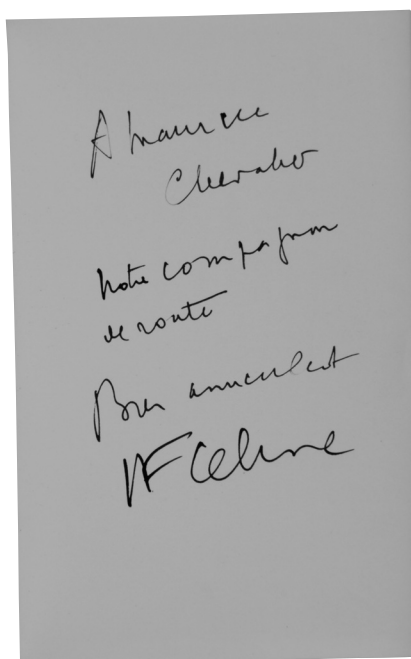 A Maurice
Chevalier
notre compagnon
de route
Bien amicalement
LF Celine